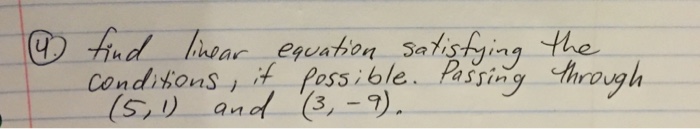 4. find linear equation satisfying the
conditions, if possible. Passing through
(5,1) and (3,-9).